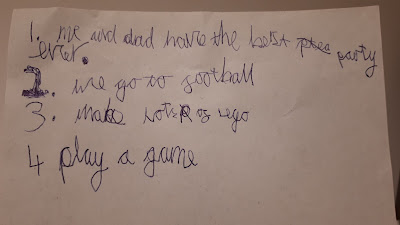 1. me and dad have the best party
ever.
2. we go to football
3. make lots of lego
4 play a game